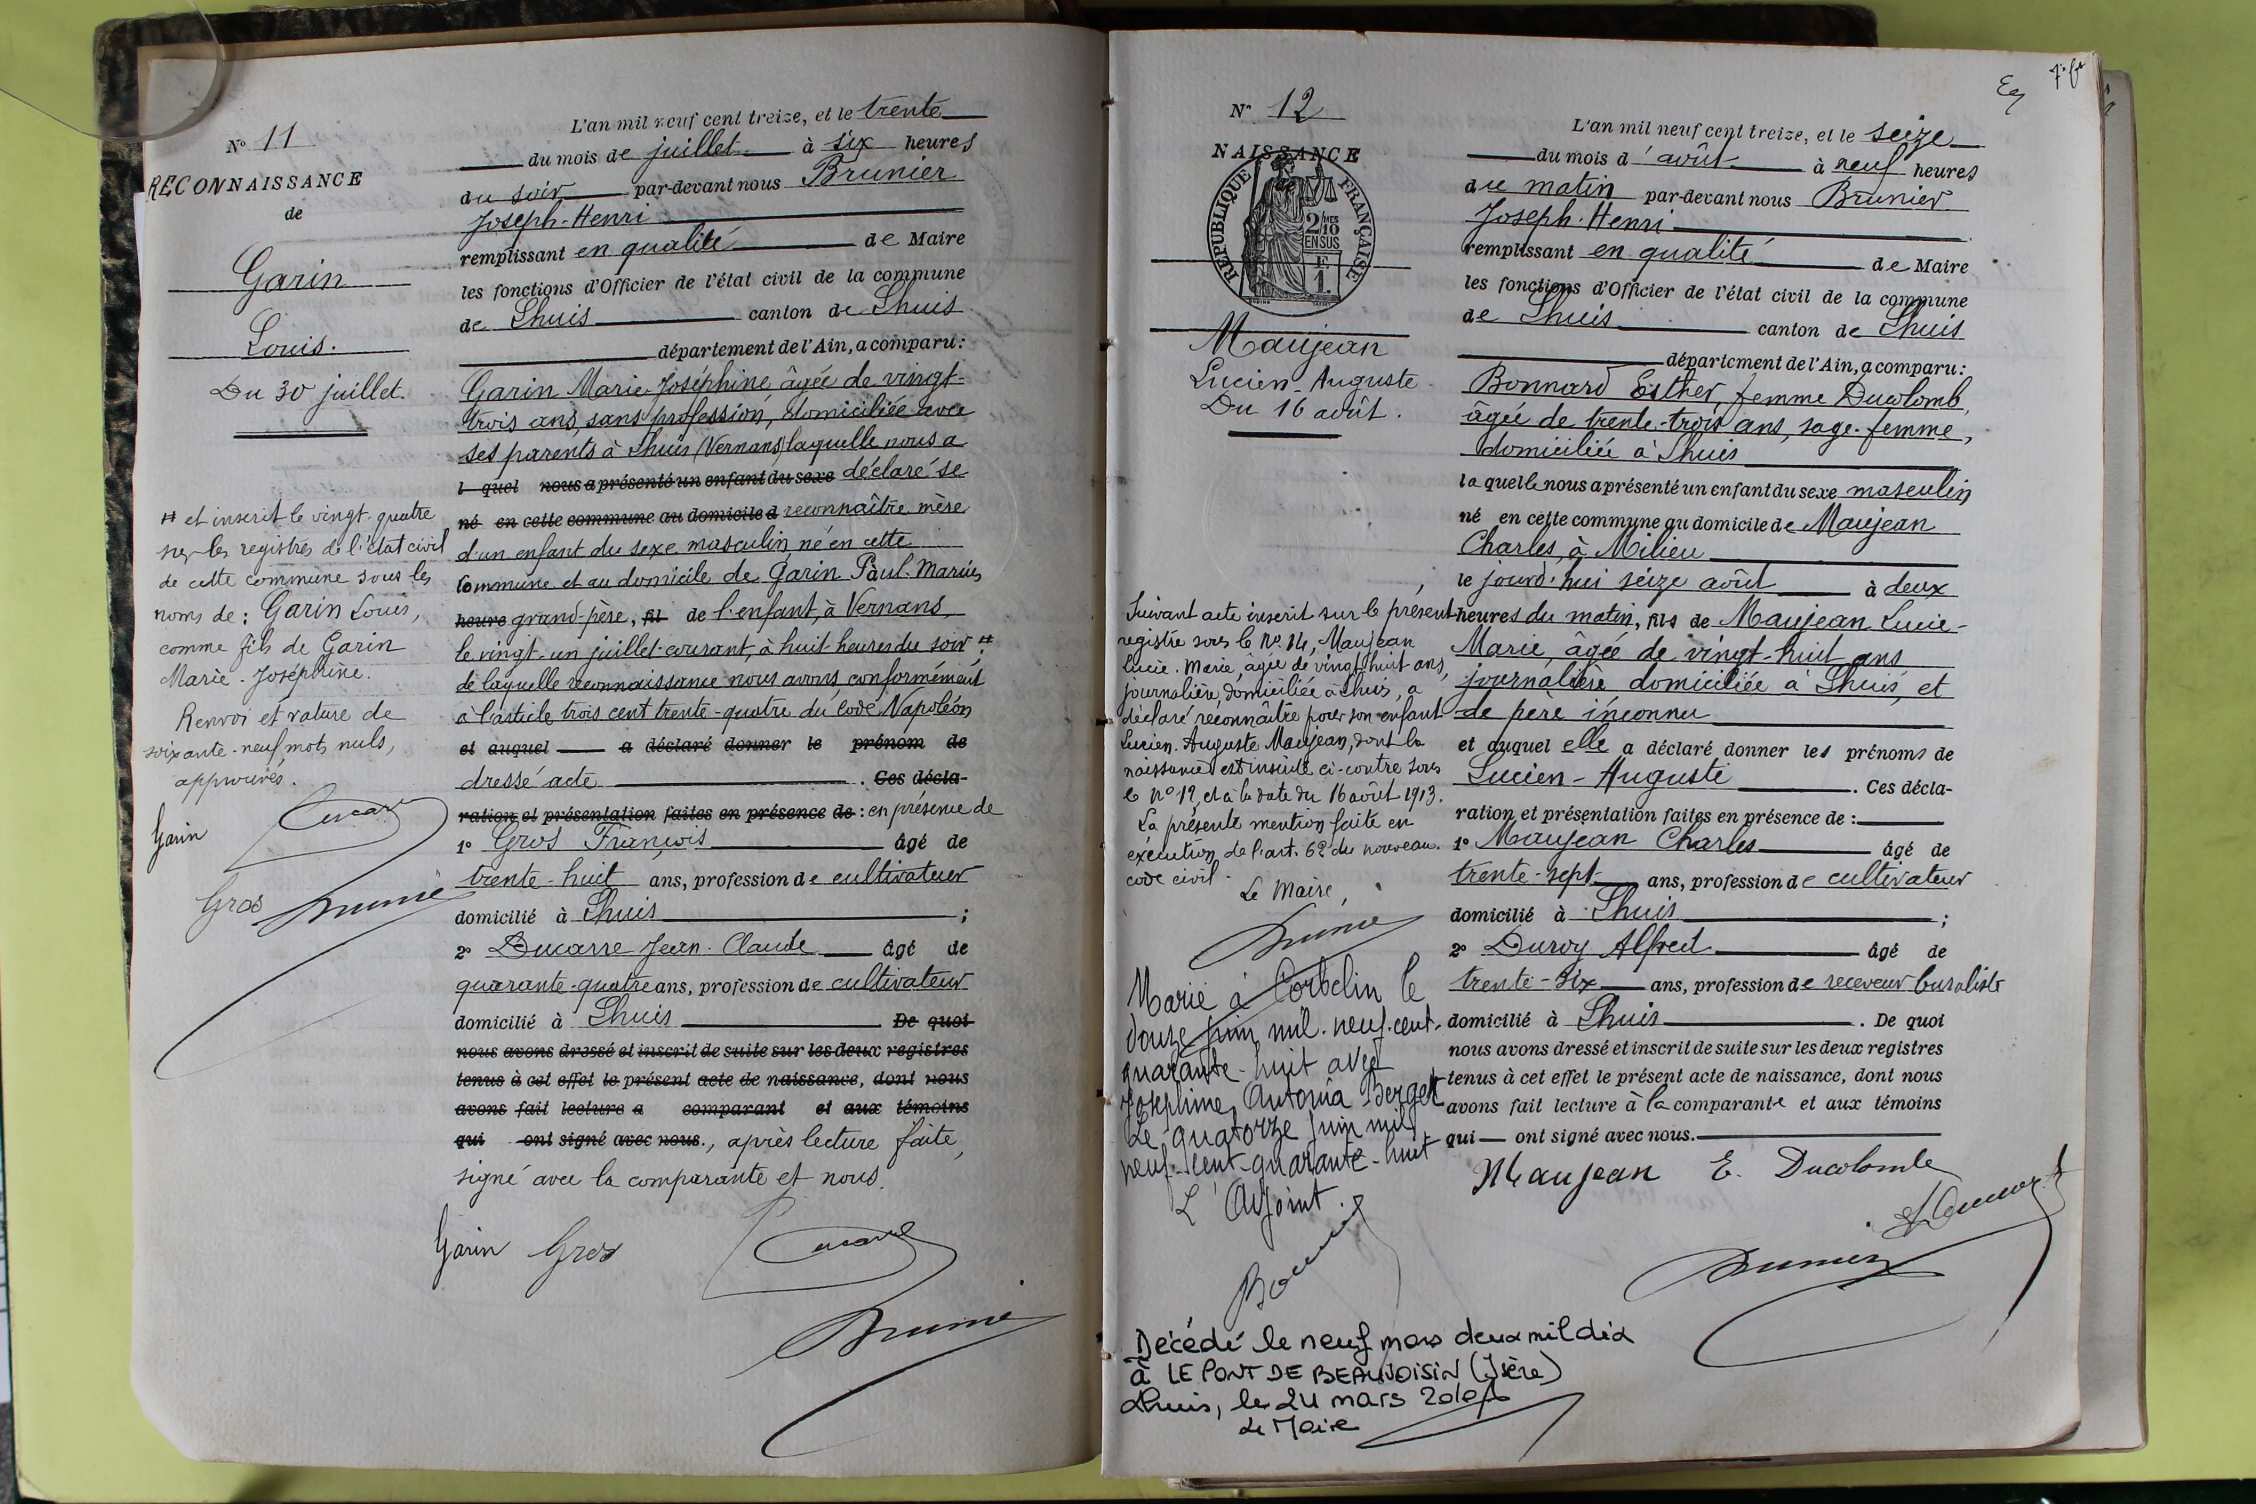 N° 11
RECONNAISSANCE
de
Garin
Louis.
Du 30 juillet.
L'an mil neuf cent treize, et le trente
du mois de juillet à six heures
du soir par-devant nous Brunier
Joseph-Henri
remplissant en qualité de Maire
les fonctions d'Officier de l'état civil de la commune
de Lhuis canton de Lhuis
département de l'Ain, a comparu:
Garin Marie-Joséphine, âgée de vingt-
trois ans, sans profession, domiciliée avec
ses parents à Lhuis (Vernans) laquelle nous a
l quel nous a présenté un enfant du sexe déclaré se
né en cette commune au domicile d reconnaître mère
d'un enfant du sexe masculin, né en cette
commune et au domicile de Garin Paul-Marius,
heure grand-père, fil de l'enfant, à Vernans,
le vingt-un juillet courant, à huit heures du soir #.
de laquelle reconnaissance nous avons, conformément
à l'article trois cent trente-quatre du code Napoléon
et auquel a déclaré donner le prénom de
dressé acte . Ces décla-
ration et présentation faites en présence de : en présence de
1° Gros François âgé de
trente-huit ans, profession de cultivateur
domicilié à Lhuis ;
2° Ducarre Jean-Claude âgé de
quarante-quatre ans, profession de cultivateur
domicilié à Lhuis De quoi
nous avons dressé et inscrit de suite sur les deux registres
tenus à cet effet le présent acte de naissance, dont nous
avons fait lecture a comparant et aux témoins
qui ont signé avec nous., après lecture faite,
signé avec la comparante et nous.
Garin Gros Ducarre
Brunier
# et inscrit le vingt-quatre
sur les registres de l'état civil
de cette commune sous les
noms de : Garin Louis,
comme fils de Garin
Marie-Joséphine.
Renvoi et rature de
soixante-neuf mots nuls,
approuvés.
Garin Ducarre
Gros Brunier
N° 12
NAISSANCE
de
RÉPUBLIQUE FRANÇAISE
2/10 MES
EN SUS
F.
1.
Maujean
Lucien-Auguste
Du 16 août.
L'an mil neuf cent treize, et le seize
du mois d'août à neuf heures
du matin par-devant nous Brunier
Joseph-Henri
remplissant en qualité de Maire
les fonctions d'Officier de l'état civil de la commune
de Lhuis canton de Lhuis
département de l'Ain, a comparu:
Bonnard Esther, femme Ducolomb,
âgée de trente-trois ans, sage-femme,
domiciliée à Lhuis
laquelle nous a présenté un enfant du sexe masculin
né en cette commune au domicile de Maujean
Charles, à Milieu
le jourd'hui seize août à deux
heures du matin, fils de Maujean Lucie-
Marie, âgée de vingt-huit ans
journalière domiciliée à Lhuis, et
de père inconnu
et auquel elle a déclaré donner les prénoms de
Lucien-Auguste . Ces décla-
ration et présentation faites en présence de :
1° Maujean Charles âgé de
trente-sept ans, profession de cultivateur
domicilié à Lhuis ;
2° Duroy Alfred âgé de
trente-six ans, profession de receveur buraliste
domicilié à Lhuis . De quoi
nous avons dressé et inscrit de suite sur les deux registres
tenus à cet effet le présent acte de naissance, dont nous
avons fait lecture à la comparante et aux témoins
qui ont signé avec nous.
Maujean E. Ducolomb
Brunier
Suivant acte inscrit sur le présent
registre sous le N° 14, Maujean
Lucie-Marie, âgée de vingt-huit ans,
journalière, domiciliée à Lhuis, a
déclaré reconnaître pour son enfant
Lucien-Auguste Maujean, dont la
naissance est inscrite ci-contre sous
le N° 12, et à la date du 16 août 1913.
La présente mention faite en
exécution de l'art. 62 du nouveau
code civil.
Le Maire,
Brunier
Marié à Corbelin le
douze juin mil-neuf-cent-
quarante-huit avec
Joséphine, Antonia Berger
Le quatorze juin mil
neuf-cent-quarante-huit
L'Adjoint.
Décédé le neuf mars deux mil dix
à LE PONT DE BEAUVOISIN (Isère)
Lhuis, le 24 mars 2010
Le Maire